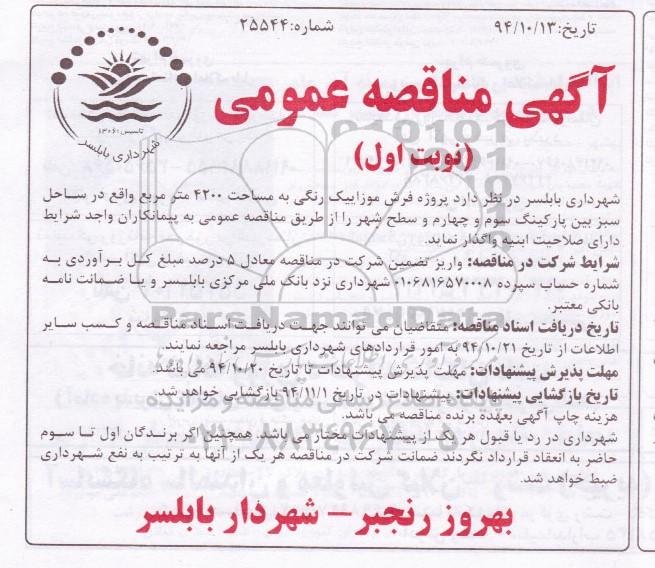 تاریخ:۹۴/۱۰/۱۳
شماره:۲۵۵۴۴
تاسیس ۱۳۰۶
شهرداری بابلسر
آگهی مناقصه عمومی
(نوبت اول)
شهرداری بابلسر در نظر دارد پروژه فرش موزاییک رنگی به مساحت ۴۲۰۰ متر مربع واقع در ساحل
سبز بین پارکینگ سوم و چهارم و سطح شهر را از طریق مناقصه عمومی به پیمانکاران واجد شرایط
دارای صلاحیت ابنیه واگذار نماید.
شرایط شرکت در مناقصه: واریز تضمین شرکت در مناقصه معادل ۵ درصد مبلغ کل برآوردی به
شماره حساب سپرده ۰۱۰۶۸۱۶۵۷۰۰۰۸ شهرداری نزد بانک ملی مرکزی بابلسر و یا ضمانت نامه
بانکی معتبر.
تاریخ دریافت اسناد مناقصه: متقاضیان می توانند جهت دریافت اسناد مناقصه و کسب سایر
اطلاعات از تاریخ ۹۴/۱۰/۲۱ به امور قراردادهای شهرداری بابلسر مراجعه نمایند.
مهلت پذیرش پیشنهادات: مهلت پذیرش پیشنهادات تا تاریخ ۹۴/۱۰/۲۰ می باشد.
تاریخ بازگشایی پیشنهادات: پیشنهادات در تاریخ ۹۴/۱۱/۱ بازگشایی خواهد شد.
هزینه چاپ آگهی بعهده برنده مناقصه می باشد.
شهرداری در رد یا قبول هر یک از پیشنهادات مختار می باشد. همچنین اگر برندگان اول تا سوم
حاضر به انعقاد قرارداد نگردند ضمانت شرکت در مناقصه هر یک از آنها به ترتیب به نفع شهرداری
ضبط خواهد شد.
بهروز رنجبر – شهردار بابلسر
ParsNamadData